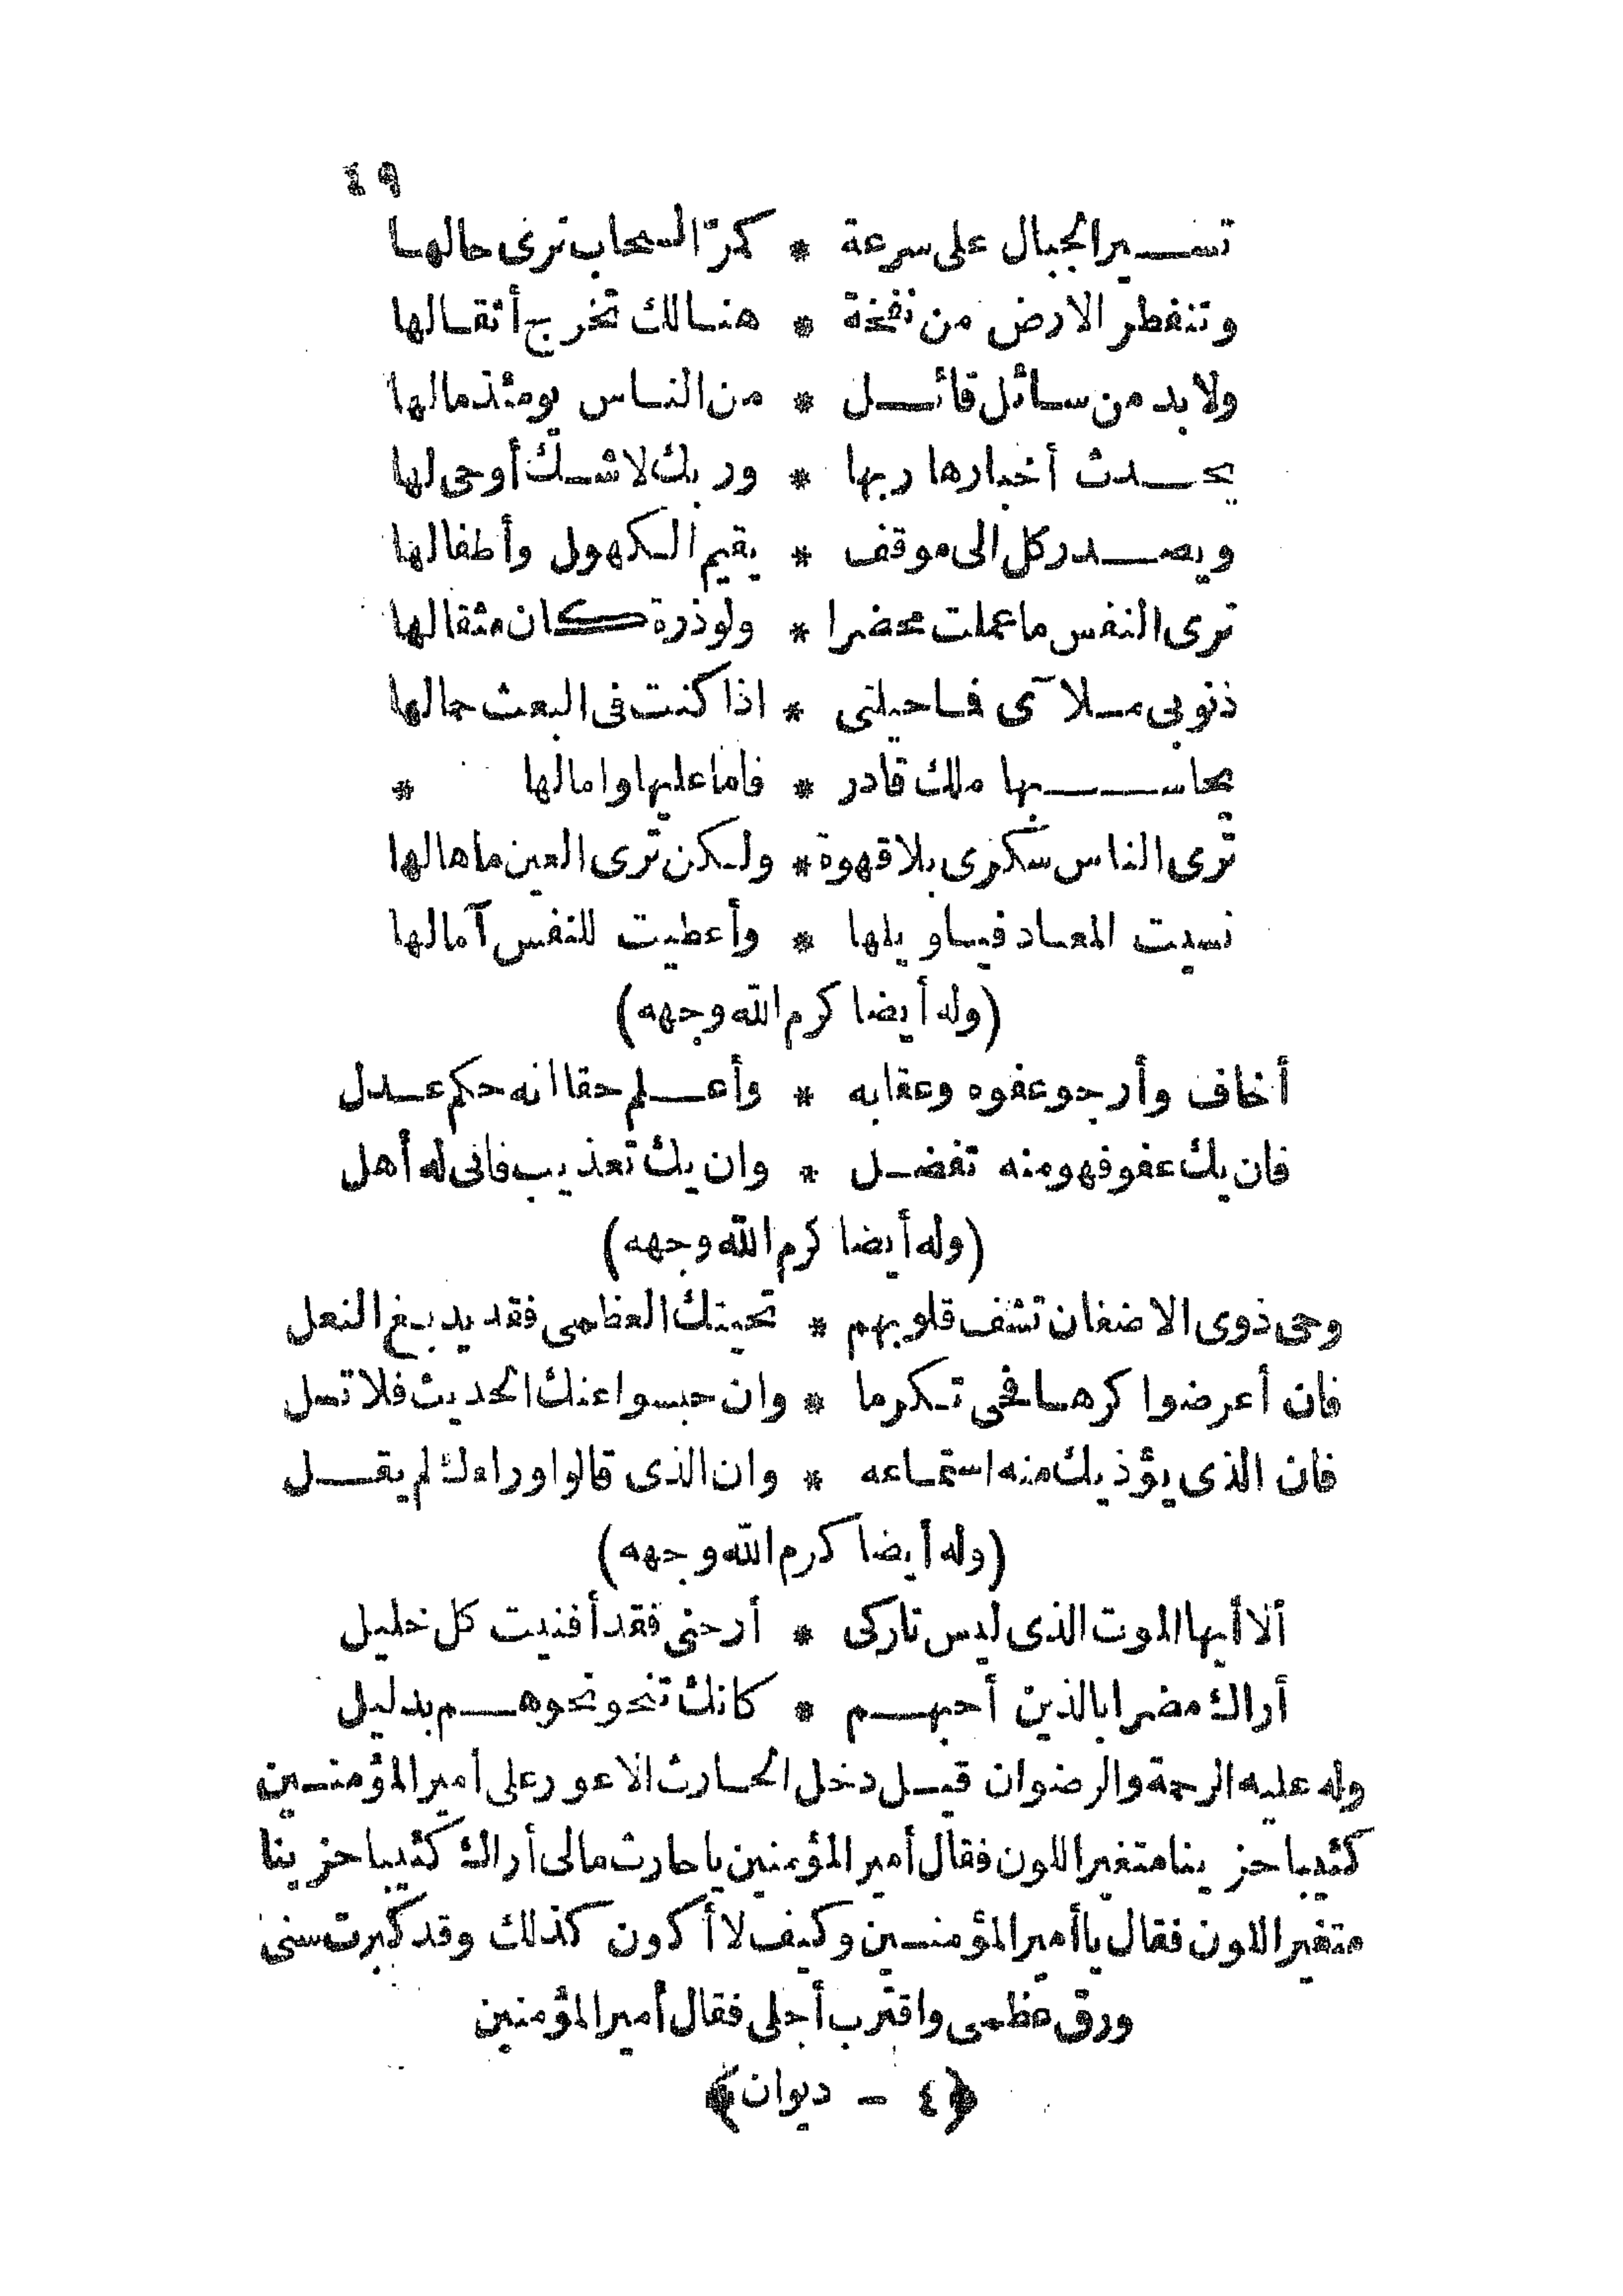 ٤٩
تسير الجبال على سرعة * كمرّ السحاب ترى حالها
وتنفطر الارض من نفخة * هنالك تخرج أثقالها
ولا بد من سائل قائل * من الناس يومئذ مالها
يحدث أخبارها ربها * وربك لا شك أوحى لها
ويصدر كل الى موقف * يقيم الكهول وأطفالها
ترى النفس ما عملت محضرا * ولو ذرة كان مثقالها
ذنوبى ملاآى فما حيلتى * اذا كنت فى البعث حمالها
يحاسبها ملك قادر * فاما عليها واما لها *
ترى الناس سكرى بلا قهوة * ولكن ترى العين ما هالها
نسيت المعاد فيا ويلها * وأعطيت للنفس آمالها
(وله أيضا كرم الله وجهه)
أخاف وأرجو عفوه وعقابه * وأعلم حقا انه حكم عدل
فان يك عفو فهو منه تفضل * وان يك تعذيب فانى له أهل
(وله أيضا كرم الله وجهه)
وحى ذوى الاضغان تشف قلوبهم * تحيتك العظمى فقد يدبغ النعل
فان أعرضوا كرها فحى تكرما * وان حبسوا عنك الحديث فلا تسل
فان الذى يؤذيك منه استماعه * وان الذى قالوا وراءك لم يقل
(وله أيضا كرم الله وجهه)
ألا أيها الموت الذى ليس تاركى * أرحنى فقد أفنيت كل خليل
أراك مضرا بالذين أحبهم * كانك تنحو نحوهم بدليل
وله عليه الرحمة والرضوان قيل دخل الحارث الاعور على أمير المؤمنين
كئيبا حزينا متغير اللون فقال أمير المؤمنين يا حارث مالى أراك كئيبا حزينا
متغير اللون فقال يا أمير المؤمنين وكيف لا أكون كذلك وقد كبرت سنى
ورق عظمى واقترب أجلى فقال أمير المؤمنين
﴿٤ - ديوان﴾